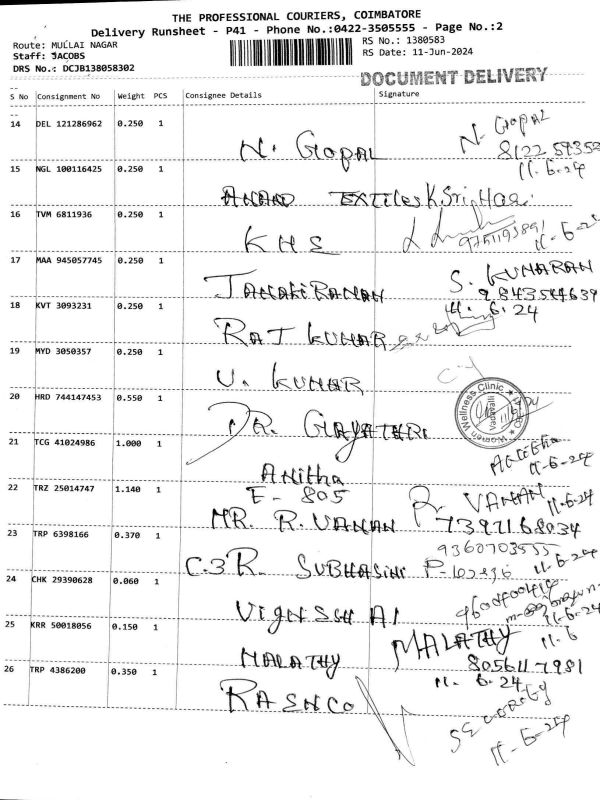 THE PROFESSIONAL COURIERS, COIMBATORE
Delivery Runsheet - P41 - Phone No.:0422-3505555 - Page No.:2
Route: MULLAI NAGAR RS No.: 1380583
Staff: JACOBS RS Date: 11-Jun-2024
DRS No.: DCJB138058302
DOCUMENT DELIVERY
S No Consignment No Weight PCS Consignee Details Signature
14 DEL 121286962 0.250 1
N. Gopal N. Gopal
11.6.24
15 NGL 100116425 0.250 1
ANAND TEXTiles K. Sri Hari
16 TVM 6811936 0.250 1
KHS 9751193891
17 MAA 945057745 0.250 1
JANAKIRAMAN S. KUMARAN
9843544639
18 KVT 3093231 0.250 1 11.6.24
RAJ KUMAR
19 MYD 3050357 0.250 1
U. KUMAR
20 HRD 744147453 0.550 1
DR. GAYATHRI Women Wellness Clinic Vadavalli
21 TCG 41024986 1.000 1
Anitha 11-6-24
E-805
22 TRZ 25014747 1.140 1
MR. R. VANAN R. VANAN 11-6-24
7397168034
23 TRP 6398166 0.370 1 9360703555
C.3 R. SUBHASINI 11-6-24
24 CHK 29390628 0.060 1
VIGNESH AI 11-6-24
25 KRR 50018056 0.150 1
MALATHY MALATHY 11-6
8056117981
26 TRP 4386200 0.350 1 11.6.24
RASHCO SECURITY
11-6-24